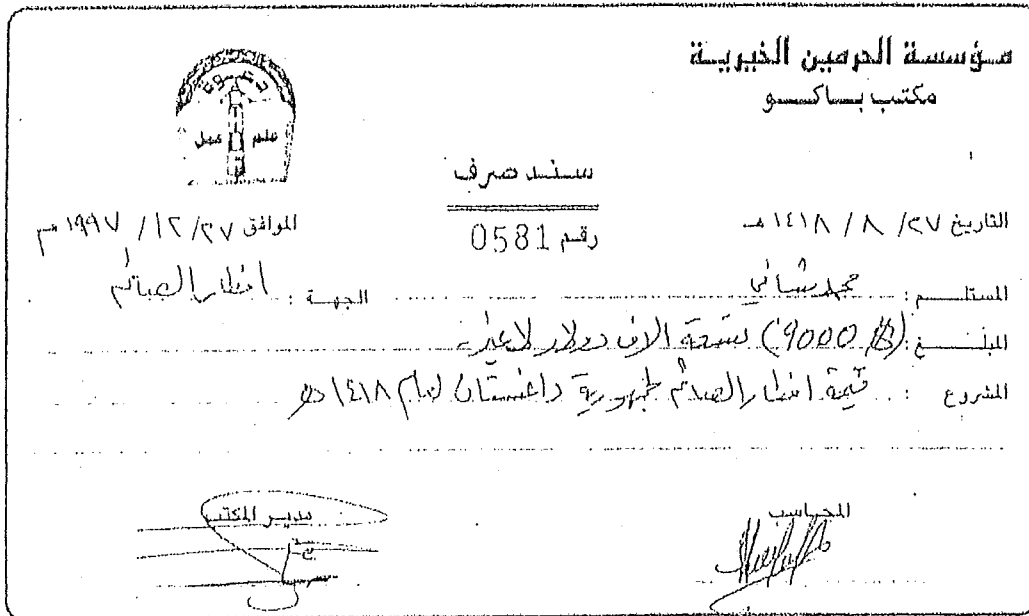 مؤسسة الحرمين الخيرية
مكتب باكو
دعوة
علم عمل
سند صرف
التاريخ ٢٧/ ٨ / ١٤١٨ هـ
رقم 0581
الموافق ٢٧/ ١٢/ ١٩٩٧ م
المستلم : محمد شافي الجهة : افطار الصائم
المبلغ : (9000 $) تسعة الاف دولار لاغير
المشروع : قيمة افطار الصائم لجمهورية داغستان لعام ١٤١٨ هـ
المحاسب مدير المكتب